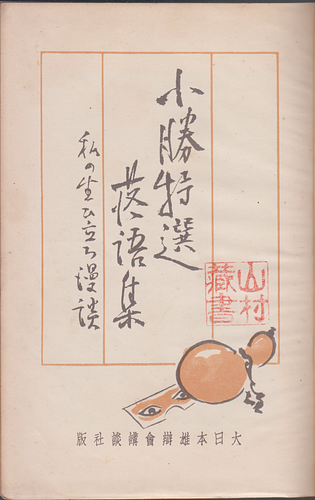 小勝特選
落語集
私の生ひ立ち漫談
山村
蔵書
大日本雄辯會講談社版